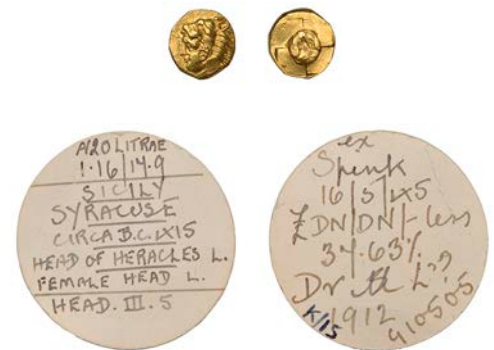 AV20 LITRAE
1.16/17.9
SICILY
SYRACUSE
CIRCA B.C. 415
HEAD OF HERACLES L.
FEMALE HEAD L.
HEAD. III. 5
ex
Spink
16/5/45
£DN/DN/- less
34.63%
Dr
K/15
1912